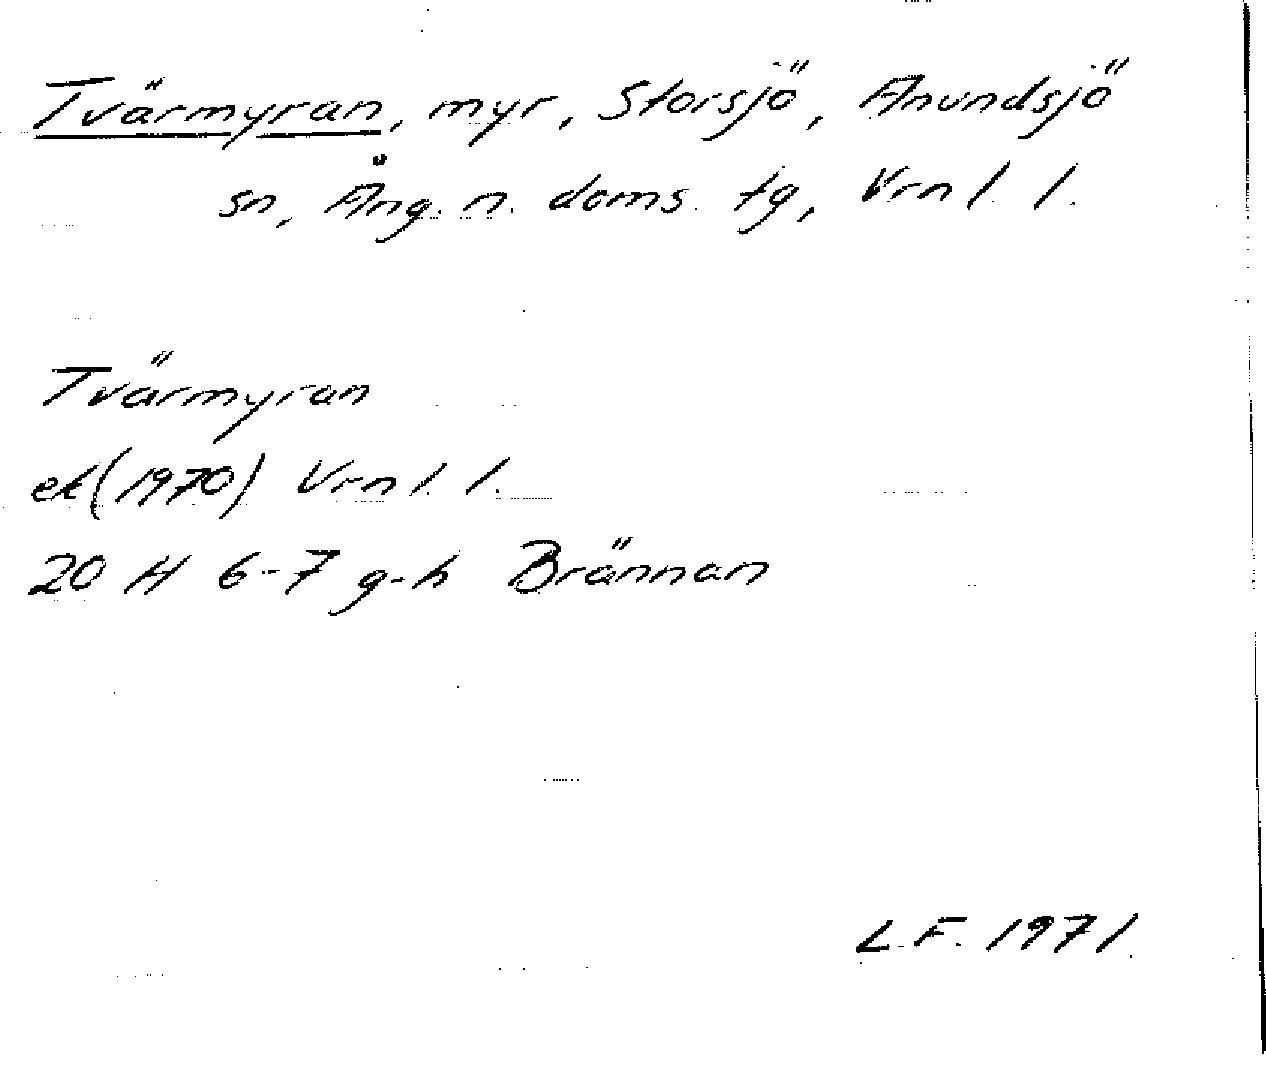 Tvärmyran, myr, Storsjö, Anundsjö
sn, Äng. n. doms. tg, Vrnl. l.
Tvärmyran
ek (1970) Vrnl. l.
20 H 6-7 g-h Brännan
L.F. 1971.